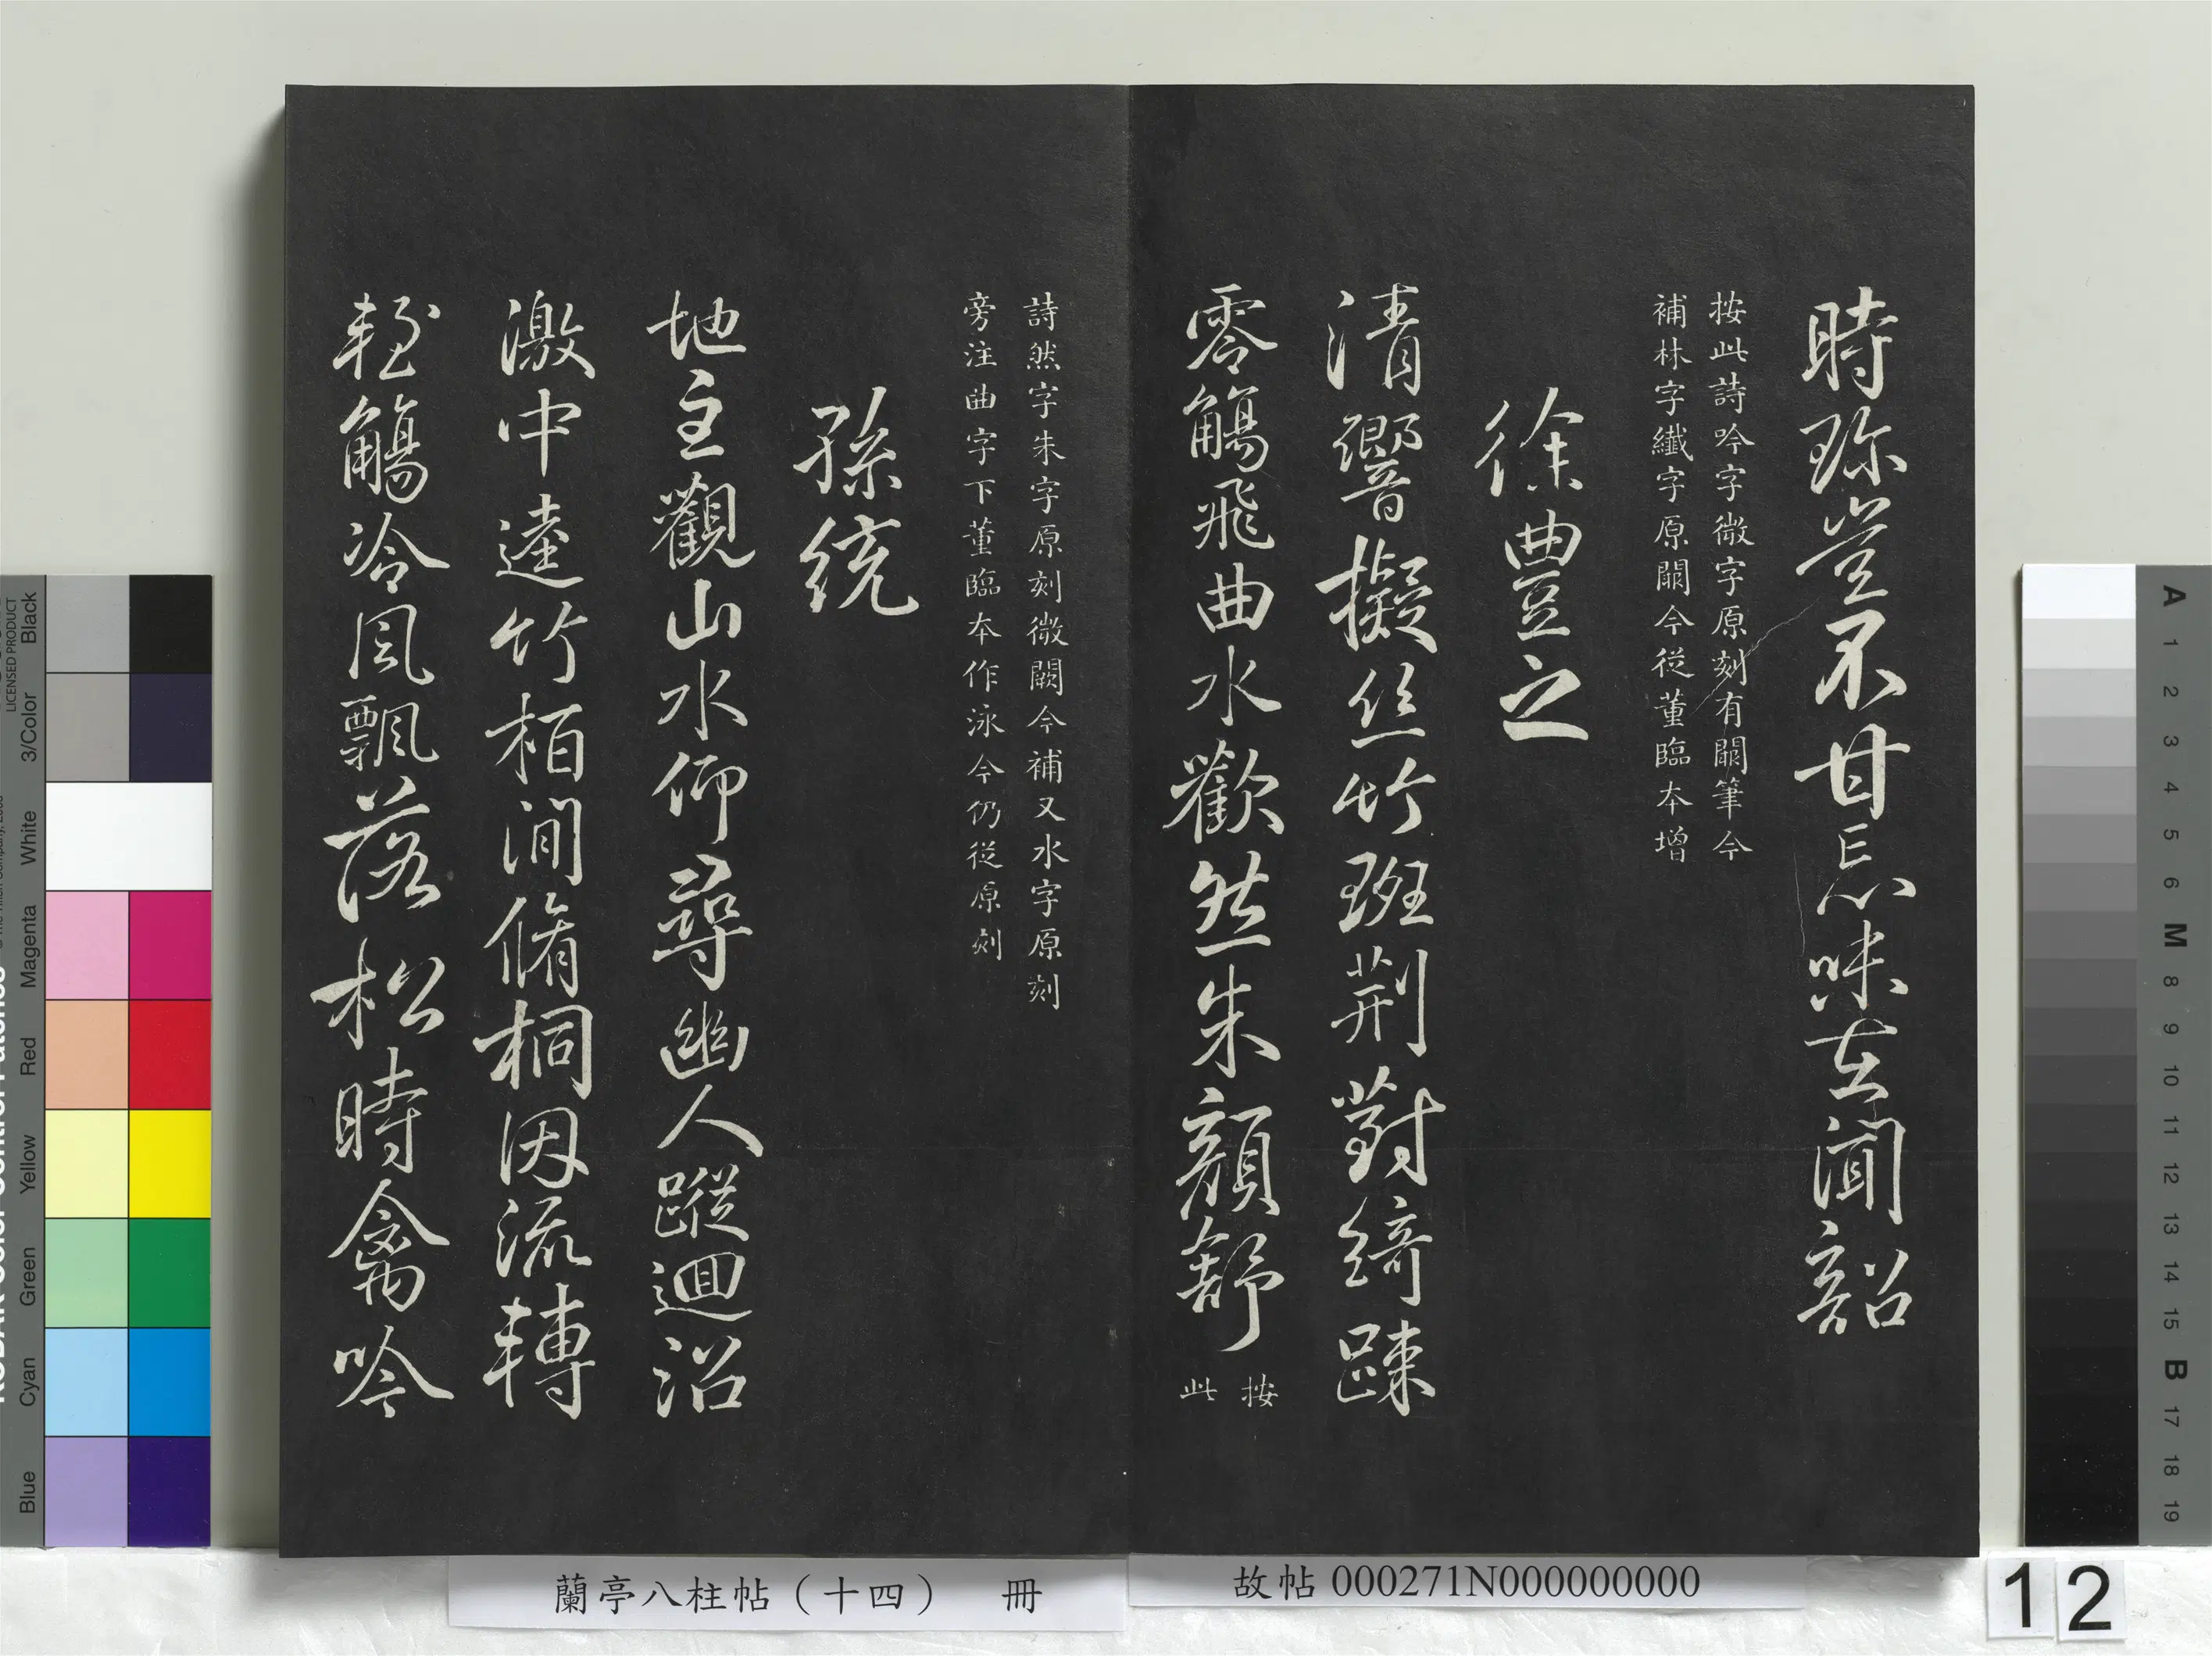 時珎豈不甘忘味在聞韶
按此詩吟字微字原刻有闕筆今
補林字纎字原闕今從董臨本增
徐豊之
清響擬絲竹班荆對綺踈
零觴飛曲水歡然朱顔舒
按此
詩然字朱字原刻微闕今補又水字原刻
旁注曲字下董臨本作泳今仍從原刻
孫統
地主觀山水仰尋幽人蹤迴沼
激中逵竹栢澗脩桐因流轉
輕觴冷風飄落松時禽吟
蘭亭八柱帖（十四） 冊
故帖 000271N000000000
12
Black
3/Color
White
Magenta
Red
Yellow
Green
Cyan
Blue
LICENSED PRODUCT
A 1 2 3 4 5 6 M 8 9 10 11 12 13 14 15 B 17 18 19